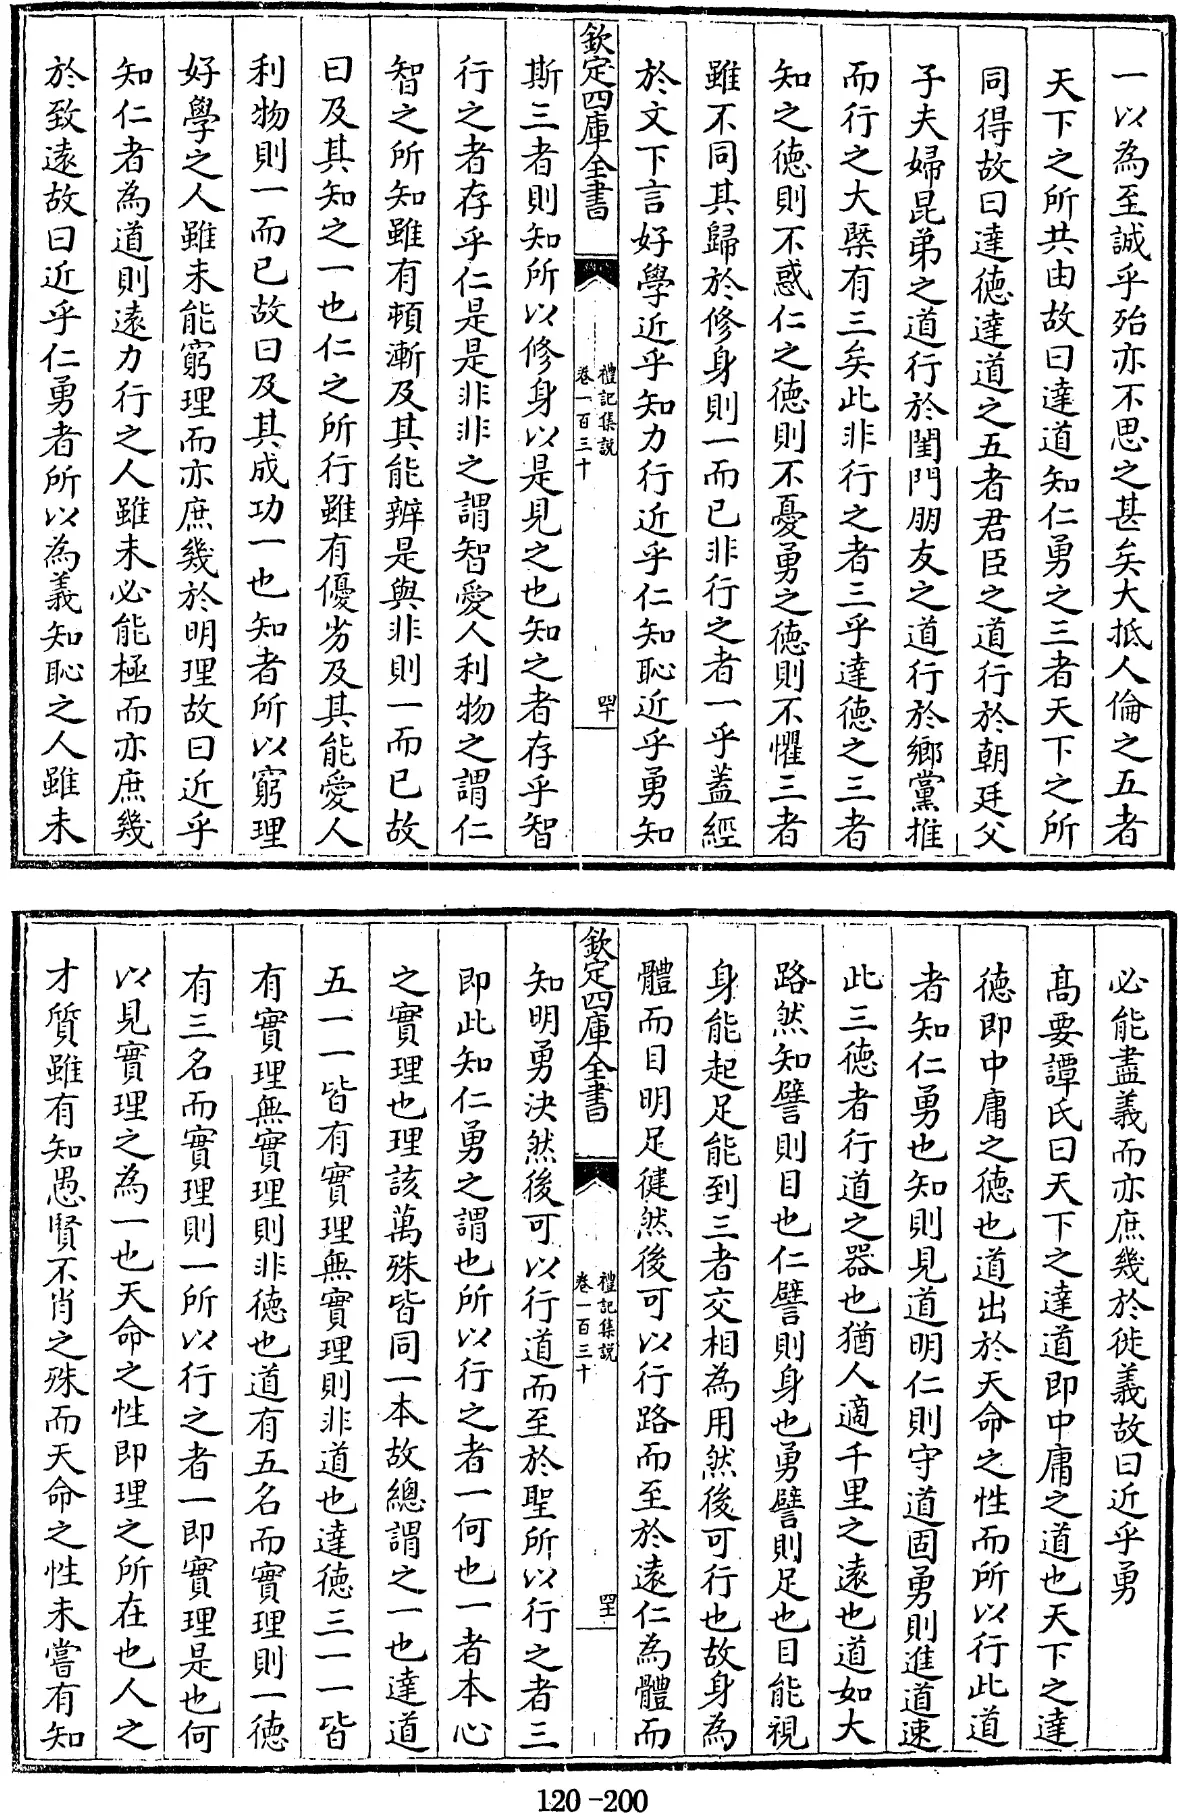 一以為至誠乎殆亦不思之甚矣大抵人倫之五者
天下之所共由故曰達道知仁勇之三者天下之所
同得故曰達徳達道之五者君臣之道行於朝廷父
子夫婦昆弟之道行於閨門朋友之道行於鄉黨推
而行之大槩有三矣此非行之者三乎達徳之三者
知之徳則不惑仁之徳則不憂勇之徳則不懼三者
雖不同其歸於修身則一而已非行之者一乎蓋經
於文下言好學近乎知力行近乎仁知恥近乎勇知
欽定四庫全書
禮記集說
卷一百三十
罕
斯三者則知所以修身以是見之也知之者存乎智
行之者存乎仁是是非非之謂智愛人利物之謂仁
智之所知雖有頓漸及其能辨是與非則一而已故
曰及其知之一也仁之所行雖有優劣及其能愛人
利物則一而已故曰及其成功一也知者所以窮理
好學之人雖未能窮理而亦庶幾於明理故曰近乎
知仁者為道則遠力行之人雖未必能極而亦庶幾
於致遠故曰近乎仁勇者所以為義知恥之人雖未
必能盡義而亦庶幾於徙義故曰近乎勇
髙要譚氏曰天下之達道即中庸之道也天下之達
徳即中庸之徳也道出於天命之性而所以行此道
者知仁勇也知則見道明仁則守道固勇則進道速
此三徳者行道之器也猶人適千里之遠也道如大
路然知譬則目也仁譬則身也勇譬則足也目能視
身能起足能到三者交相為用然後可行也故身為
體而目明足健然後可以行路而至於遠仁為體而
欽定四庫全書
禮記集說
卷一百三十
知明勇決然後可以行道而至於聖所以行之者三
即此知仁勇之謂也所以行之者一何也一者本心
之實理也理該萬殊皆同一本故總謂之一也達道
五一一皆有實理無實理則非道也達徳三一一皆
有實理無實理則非徳也道有五名而實理則一徳
有三名而實理則一所以行之者一即實理是也何
以見實理之為一也天命之性即理之所在也人之
才質雖有知愚賢不肖之殊而天命之性未嘗有知
120-200